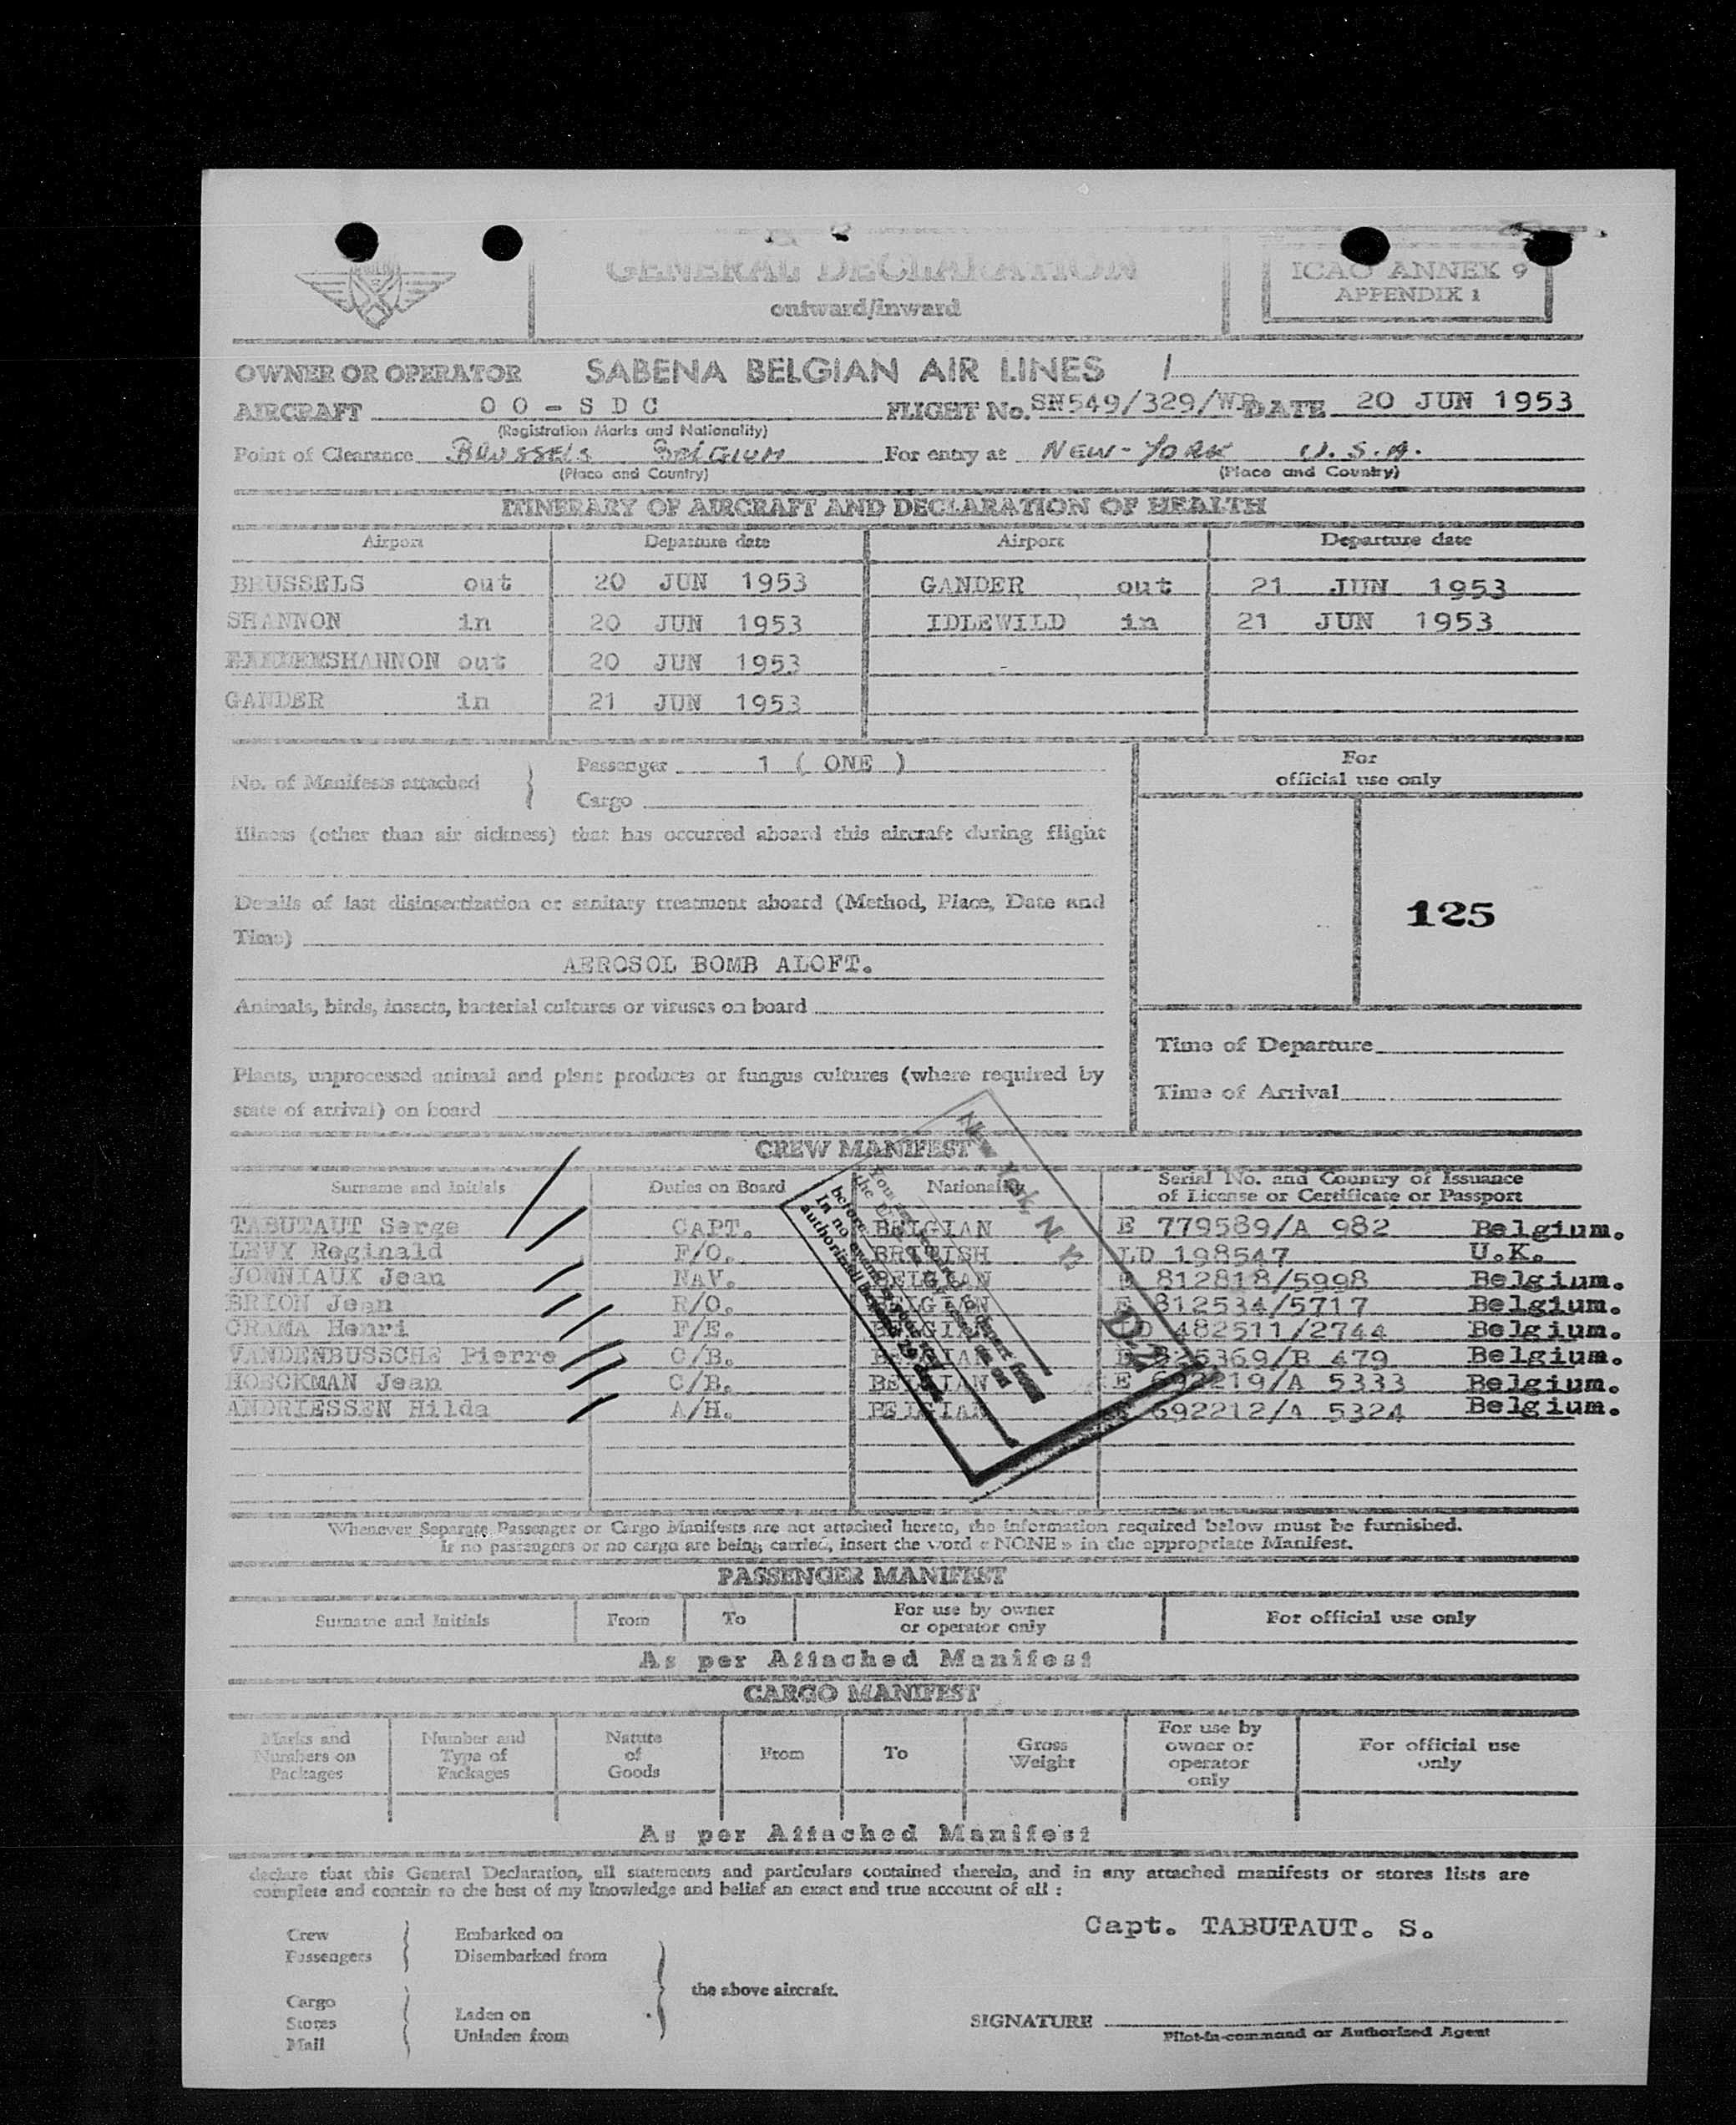 SABENA
GENERAL DECLARATION
outward/inward
ICAO ANNEX 9
APPENDIX 1
OWNER OR OPERATOR SABENA BELGIAN AIR LINES /
AIRCRAFT OO-SDC FLIGHT No. SN549/329/WB DATE 20 JUN 1953
(Registration Marks and Nationality)
Point of Clearance BRUSSELS BELGIUM For entry at NEW-YORK U.S.A.
(Place and Country) (Place and Country)
ITINERARY OF AIRCRAFT AND DECLARATION OF HEALTH
Airport Departure date Airport Departure date
BRUSSELS out 20 JUN 1953 GANDER out 21 JUN 1953
SHANNON in 20 JUN 1953 IDLEWILD in 21 JUN 1953
SHANNON out 20 JUN 1953
GANDER in 21 JUN 1953
No. of Manifests attached } Passenger 1 ( ONE )
Cargo
For
official use only
Illness (other than air sickness) that has occurred aboard this aircraft during flight
Details of last disinsectization or sanitary treatment aboard (Method, Place, Date and
Time)
AEROSOL BOMB ALOFT.
125
Animals, birds, insects, bacterial cultures or viruses on board
Time of Departure
Plants, unprocessed animal and plant products or fungus cultures (where required by
state of arrival) on board
Time of Arrival
CREW MANIFEST
Surname and Initials Duties on Board Nationality Serial No. and Country of Issuance
of License or Certificate or Passport
TABUTAUT Serge CAPT. BELGIAN E 779589/A 982 Belgium.
LEVY Reginald F/O. BRITISH LD 198547 U.K.
JONNIAUX Jean NAV. BELGIAN E 812818/5998 Belgium.
BRION Jean R/O. BELGIAN E 812534/5717 Belgium.
CRAMA Henri F/E. BELGIAN 482511/2744 Belgium.
VANDENBUSSCHE Pierre C/B. BELGIAN 5369/B 479 Belgium.
HOECKMAN Jean C/B. BELGIAN E 692219/A 5333 Belgium.
ANDRIESSEN Hilda A/H. BELGIAN 692212/A 5324 Belgium.
New York, N.Y.
D-2
before
In no event
authorized beyond 29 days
Whenever Separate Passenger or Cargo Manifests are not attached hereto, the information required below must be furnished.
If no passengers or no cargo are being carried, insert the word « NONE » in the appropriate Manifest.
PASSENGER MANIFEST
Surname and Initials From To For use by owner
or operator only For official use only
As per Attached Manifest
CARGO MANIFEST
Marks and
Numbers on
Packages
Number and
Type of
Packages
Nature
of
Goods
From
To
Gross
Weight
For use by
owner or
operator
only
For official use
only
As per Attached Manifest
declare that this General Declaration, all statements and particulars contained therein, and in any attached manifests or stores lists are
complete and contain to the best of my knowledge and belief an exact and true account of all :
Capt. TABUTAUT. S.
Crew
Passengers
Embarked on
Disembarked from
the above aircraft.
Cargo
Stores
Mail
Laden on
Unladen from
SIGNATURE
Pilot-in-command or Authorized Agent